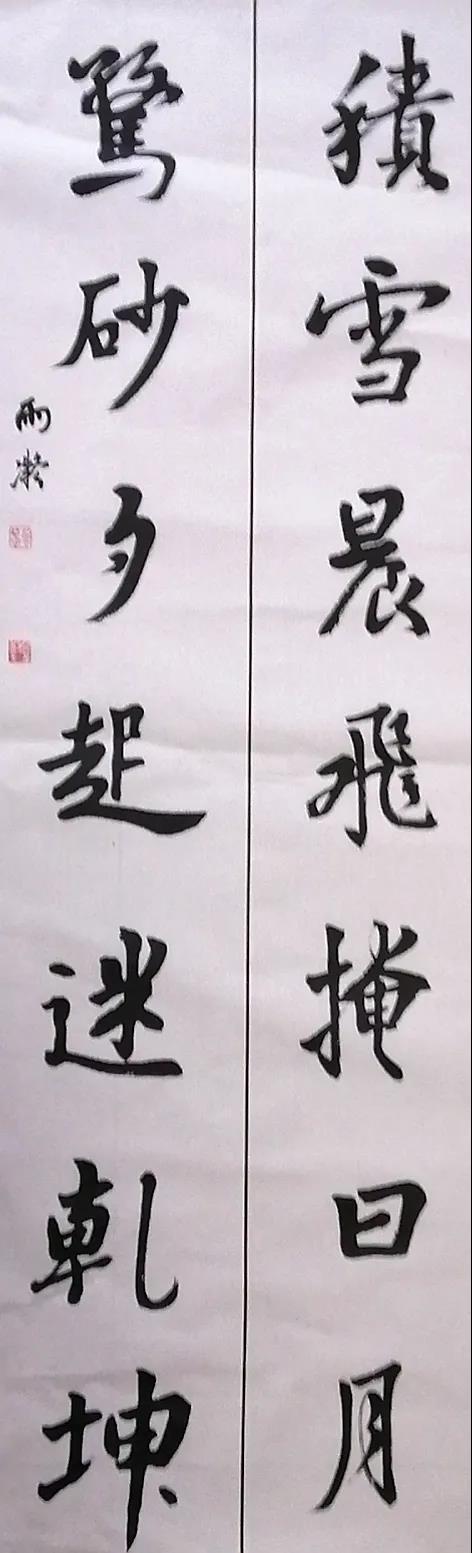 積雪晨飛掩日月
驚砂夕起迷乾坤
雨凝